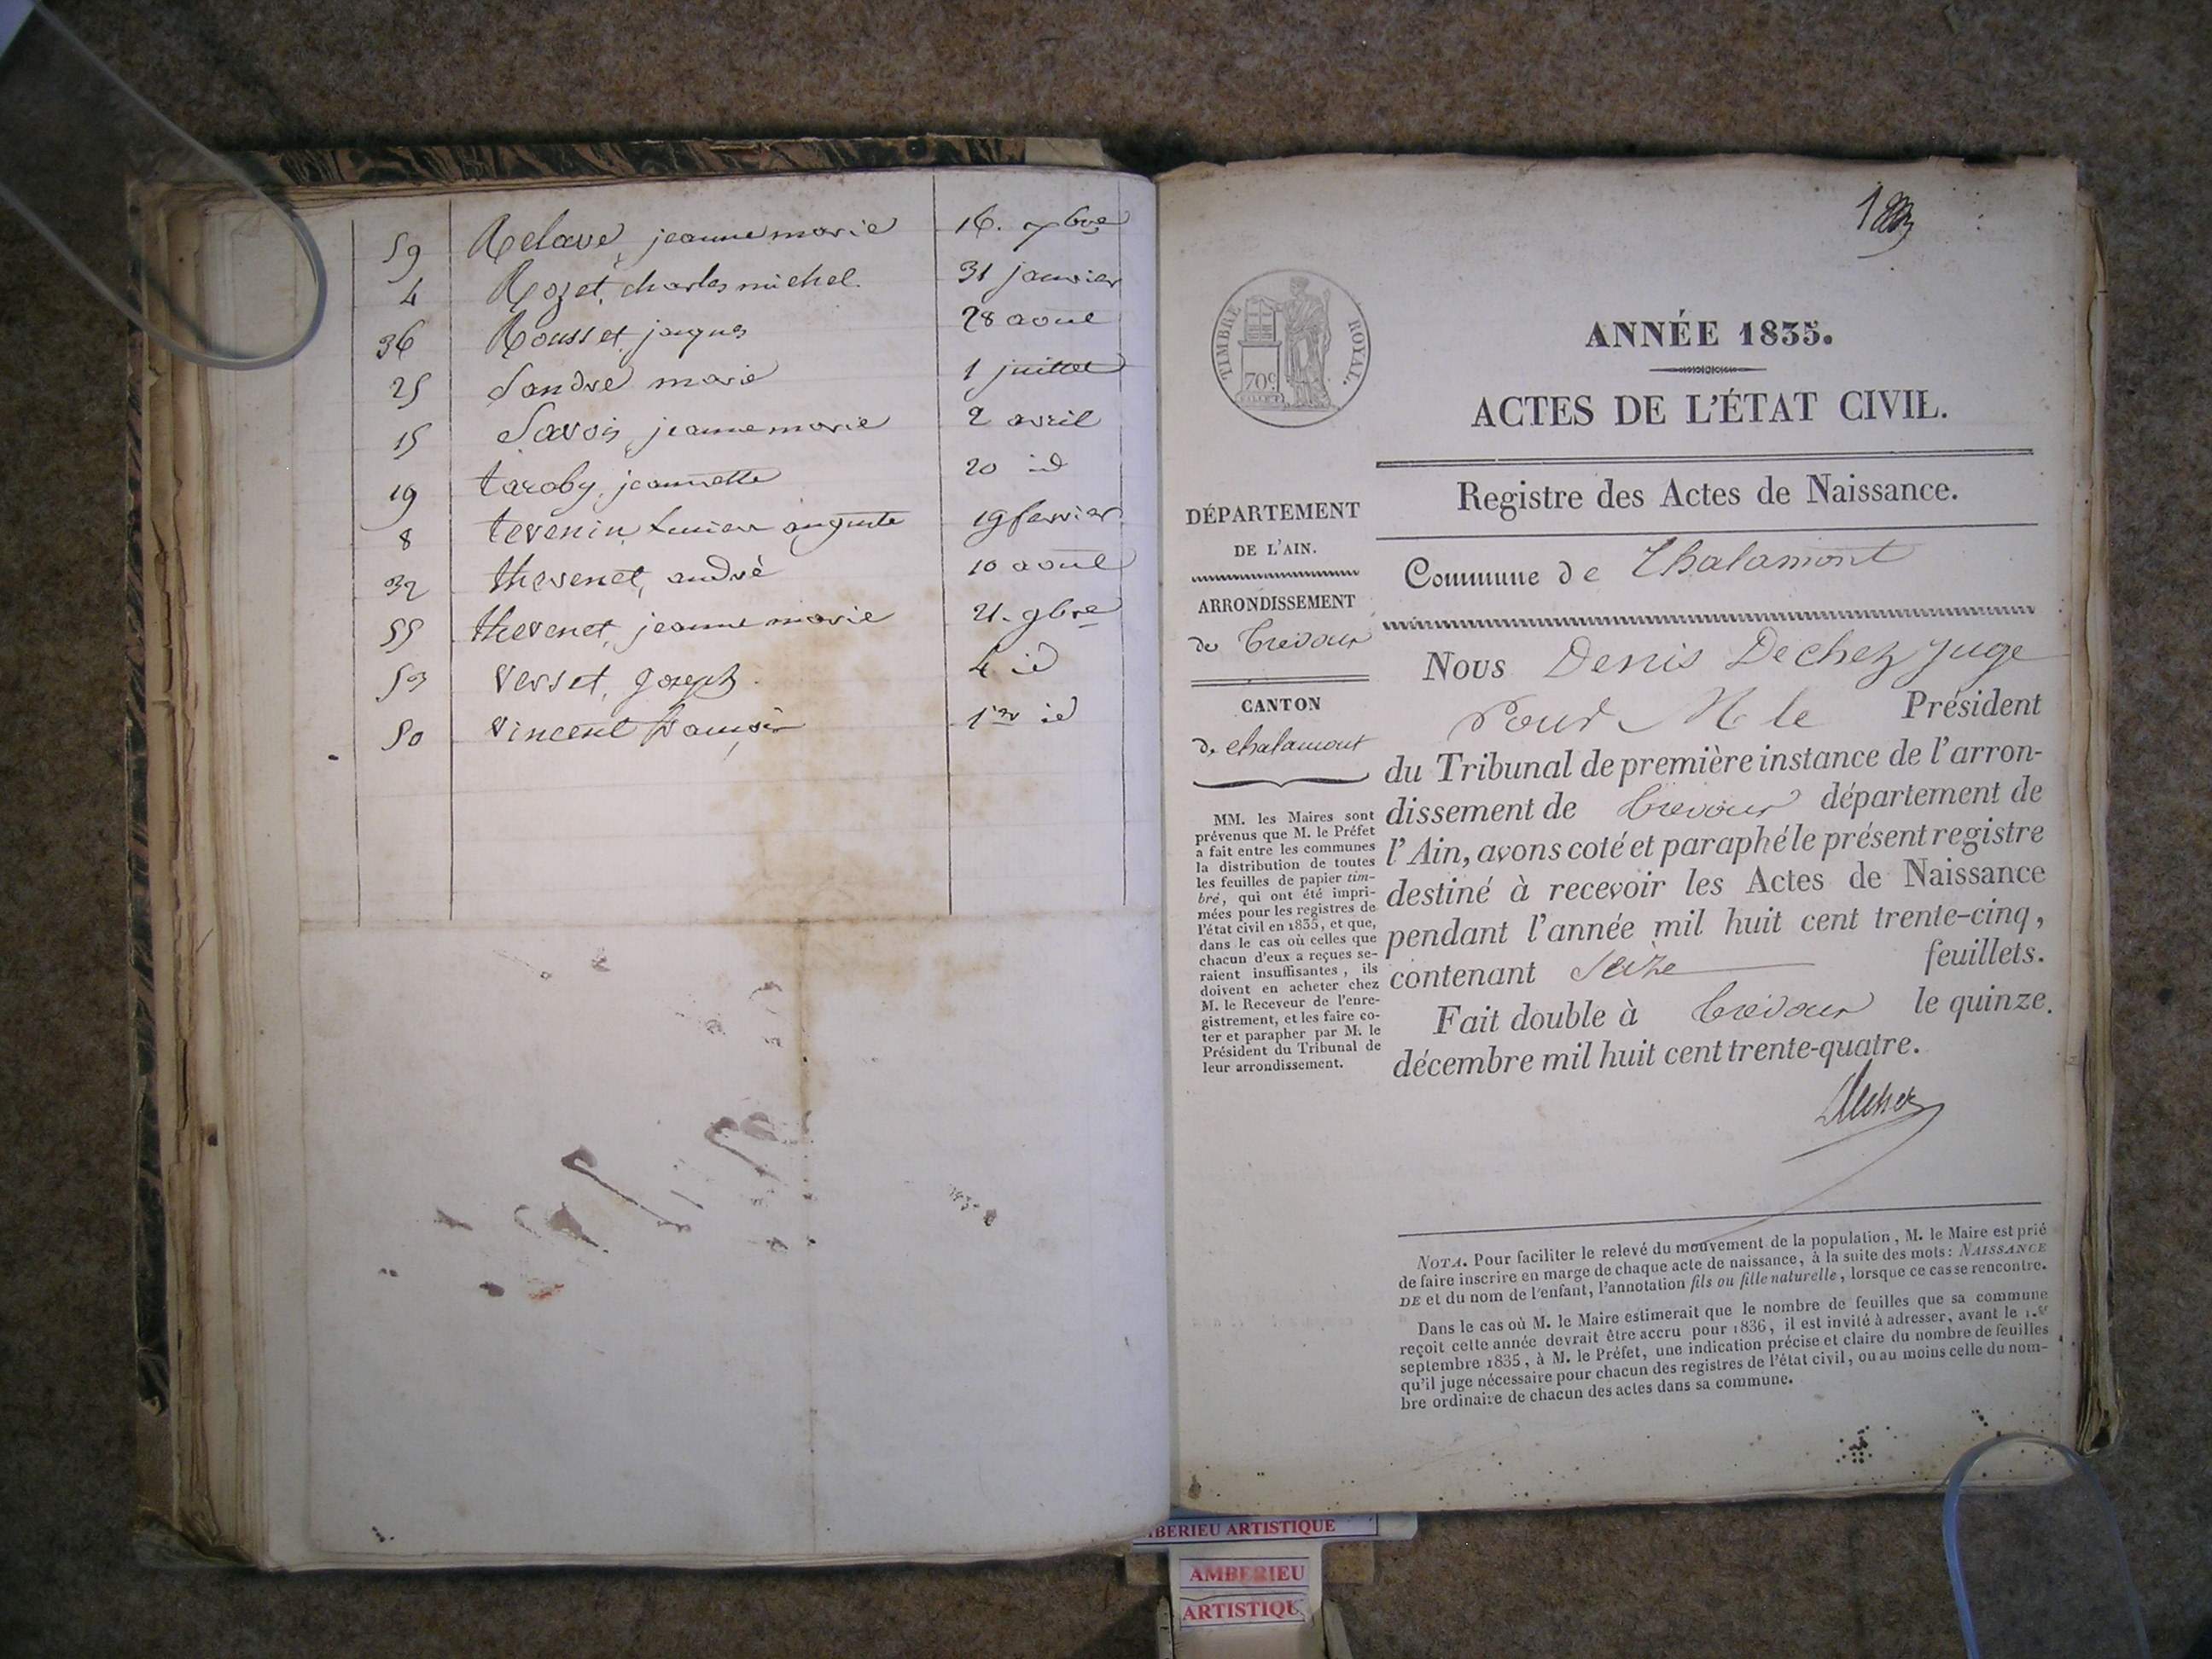 59 Relave, jeanne marie 16. xbre
4 Rozet, charles michel. 31 janvier
36 Rousset, jaques 28 aout
25 Sandre marie 1 juillet
15 Savois, jeanne marie 2 avril
19 taroby, jeannette 20 id
8 tevenin, auguste 19 fevrier
32 thevenet, andré 10 aout
55 thevenet, jeanne marie 21. 9bre
53 Versset, Joseph. 4 id
50 Vincent françois 1er id
TIMBRE ROYAL.
70c
ANNÉE 1835.
ACTES DE L'ÉTAT CIVIL.
Registre des Actes de Naissance.
DÉPARTEMENT
DE L'AIN.
ARRONDISSEMENT
de Trevoux
CANTON
de chalamont
MM. les Maires sont
prévenus que M. le Préfet
a fait entre les communes
la distribution de toutes
les feuilles de papier tim-
bré, qui ont été impri-
mées pour les registres de
l'état civil en 1835, et que,
dans le cas où celles que
chacun d'eux a reçues se-
raient insuffisantes, ils
doivent en acheter chez
M. le Receveur de l'enre-
gistrement, et les faire co-
ter et parapher par M. le
Président du Tribunal de
leur arrondissement.
Commune de Chalamont
Nous Denis Dechez juge
Pour M le Président
du Tribunal de première instance de l'arron-
dissement de Trevoux département de
l'Ain, avons coté et paraphé le présent registre
destiné à recevoir les Actes de Naissance
pendant l'année mil huit cent trente-cinq,
contenant Seize feuillets.
Fait double à Trévoux le quinze.
décembre mil huit cent trente-quatre.
Dechez
NOTA. Pour faciliter le relevé du mouvement de la population, M. le Maire est prié
de faire inscrire en marge de chaque acte de naissance, à la suite des mots: NAISSANCE
DE et du nom de l'enfant, l'annotation fils ou fille naturelle, lorsque ce cas se rencontre.
Dans le cas où M. le Maire estimerait que le nombre de feuilles que sa commune
reçoit cette année devrait être accru pour 1836, il est invité à adresser, avant le 1.er
septembre 1835, à M. le Préfet, une indication précise et claire du nombre de feuilles
qu'il juge nécessaire pour chacun des registres de l'état civil, ou au moins celle du nom-
bre ordinaire de chacun des actes dans sa commune.
BERIEU ARTISTIQUE
AMBERIEU
ARTISTIQU